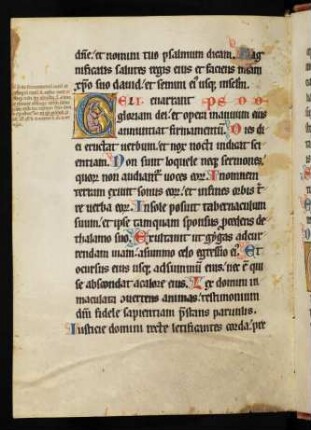 dñe. et nomini tuo psalmum dicam. Mag
nificans salutes regis eius et faciens m̃iam
xp̃o suo dauid. et semini ei usq; in sc̃lm.
Celi enarrant
gloriam dei: et opera manuum eius
annunciat firmamentũ. Dies di
ei eructat uerbum. et nox nocti indicat sci
entiam. Non sunt loquele neq; sermones.
quor̃ non audiant̃ uoces eor̃. In omnem
terram exiuit sonus eor̃. et in fines orbis t̃
re uerba eor̃. In sole posuit tabernaculum
suum. et ipse tamquam sponsus p̃cedens de
thalamo suo. Exultauit ut gygas ad cur
rendam uiam. a summo celo egressio ei. Et
occursus eius usq; ad summũ eius. nec ẽ qui
se abscondat a calore eius. Lex domini in
maculata conuertens animas. testimonium
dñi fidele sapientiam p̃stans paruulis.
Iusticie domini recte letificantes corda. p̃